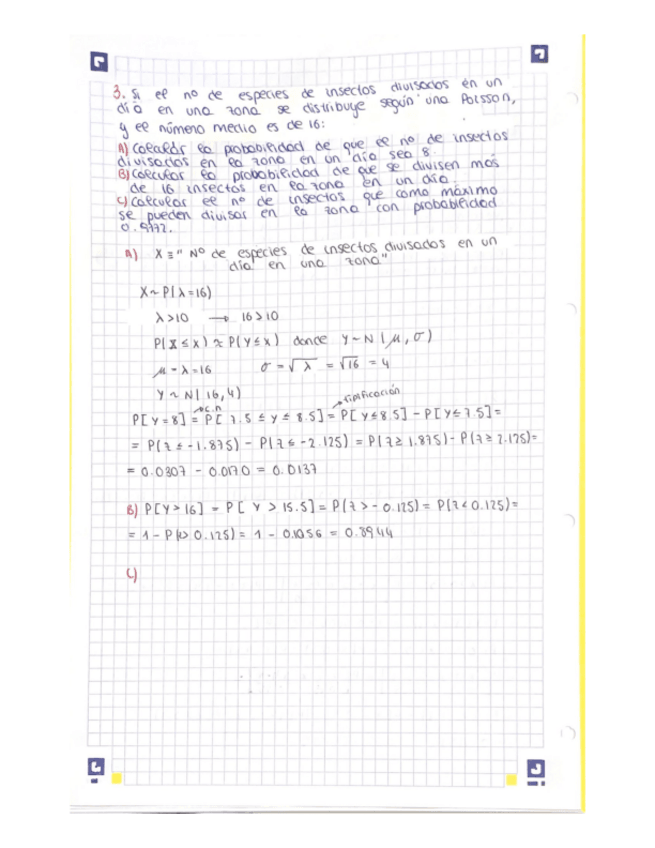 3. Si el nº de especies de insectos divisados en un
día en una zona se distribuye según una Poisson,
y el número medio es de 16:
A) Calcular la probabilidad de que el nº de insectos
divisados en la zona en un día sea 8.
B) Calcular la probabilidad de que se divisen más
de 16 insectos en la zona en un día.
C) Calcular el nº de insectos que como máximo
se pueden divisar en la zona con probabilidad
0.9772.
A) X ≡ "Nº de especies de insectos divisados en un
día en una zona"
X ~ P(λ=16)
λ>10 → 16>10
P(X ≤ x) ≈ P(Y ≤ x) donde Y ~ N(μ, σ)
μ = λ = 16 σ = √λ = √16 = 4
Y ~ N(16, 4)
→ c.n → tipificación
P[Y=8] = P[7.5 ≤ Y ≤ 8.5] = P[Y ≤ 8.5] - P[Y ≤ 7.5] =
= P(z ≤ -1.875) - P(z ≤ -2.125) = P(z ≥ 1.875) - P(z ≥ 2.125) =
= 0.0307 - 0.0170 = 0.0137
B) P[Y > 16] = P[Y > 15.5] = P(z > -0.125) = P(z < 0.125) =
= 1 - P(z > 0.125) = 1 - 0.1056 = 0.8944
C)